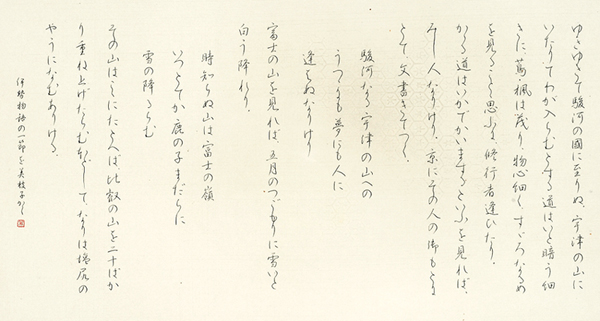 ゆきゆきて駿河の國に至りぬ。宇津の山に
いたりてわが入らむとする道はいと暗う細
きに、蔦楓は茂り、物心細く、すゞろなるめ
を見ることと思ふに修行者逢ひたり。
かゝる道はいかでかいまするといふを見れば、
みし人なりけり。京にその人の御もとに
とて文書きてつく。
駿河なる宇津の山への
うつゝにも夢にも人に
逢はぬなりけり
富士の山を見れば、五月のつごもりに雪いと
白う降れり。
時知らぬ山は富士の嶺
いつとてか鹿の子まだらに
雪の降るらむ
その山はこゝにたとへば、比叡の山を二十ばか
り重ね上げたらむ程して、なりは塩尻の
やうになむありける。
伊勢物語の一節を 美枝子かく